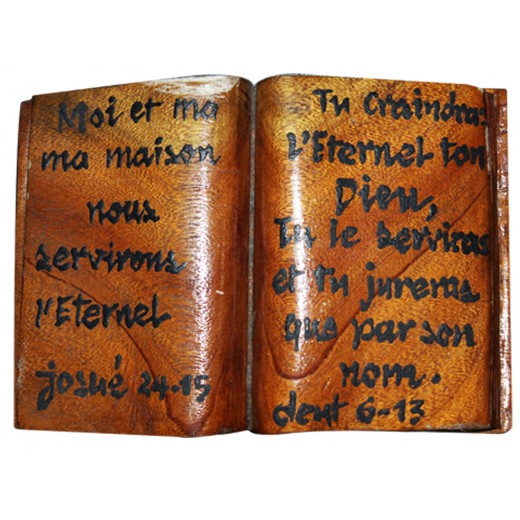 Moi et ma
ma maison
nous
servirons
l'Eternel
josué 24-15
Tu Craindras
L'Eternel ton
Dieu,
Tu le serviras
et tu jureras
que par son
nom.
deut 6-13